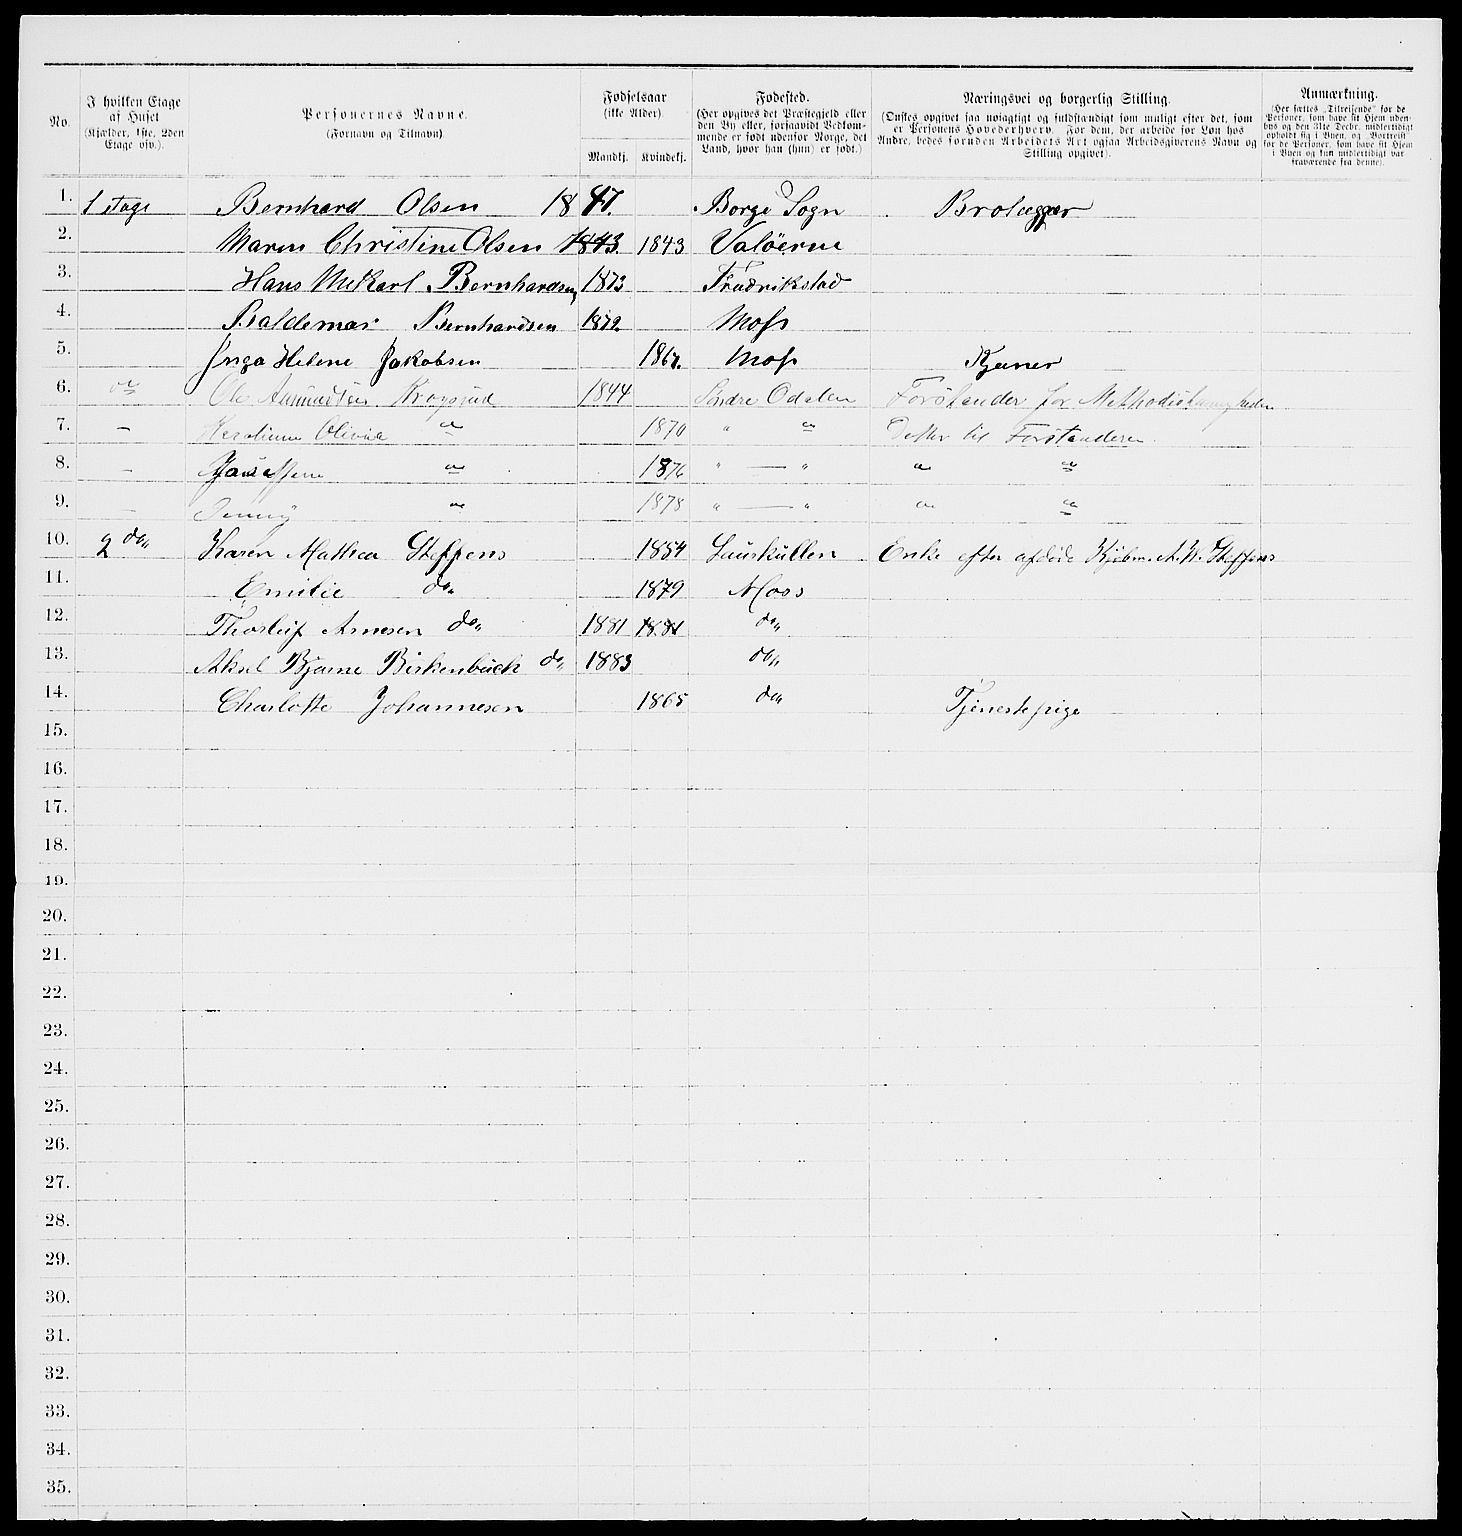 No.
I hvilken Etage af Huset (Kjælder, 1ste, 2den Etage osv.).
Personernes Navne. (Fornavn og Tilnavn).
Fødselsaar (ikke Alder)
Mandkj. Kvindekj.
Fødested. (Her opgives det Præstegjeld eller den By eller, forsaavidt Vedkommende er født udenfor Norge, det Land, hvor han (hun) er født.)
Næringsvei og borgerlig Stilling. (Ønskes opgivet saa nøiagtigt og fuldstændigt som muligt efter det, som er Personens Hovederhverv. For dem, der arbeide for Løn hos Andre, bedes foruden Arbeidets Art ogsaa Arbeidsgiverens Navn og Stilling opgivet).
Anmærkning. (Her sættes „Tilreisende" for de Personer, som have sit Hjem udenbys og den 31te Decbr. midlertidigt opholdt sig i Byen, og „Bortreist" for de Personer, som have sit Hjem i Byen og kun midlertidigt var fraværende fra denne).
1. 1 Etage Bernhard Olsen 1847. Borge Sogn Brolægger
2. Maren Christine Olsen 1843. 1843 Valöerne
3. Hans Bernhardsen 1873 Fredrikstad
4. Baldemar Bernhardsen 1872 Moss
5. Inga Helene Jakobsen 1867. Moss
6. Ole Krogsrud 1844 Söndre Odalen Forstander for
7. – Olivia " 1870 " " Datter til Forstanderen
8. – " 1876 " — " " "
9. – Jenny " 1878 " — " " "
10. 2 do„ Karen Mathea Steffens 1854 Enke efter afdøde Steffens
11. Emilie do„ 1879 Moss
12. Thorleif Arnesen do„ 1881 1881 do„
13. Aksel Bjarne Birkenbuch do„ 1883 do„
14. Charlotte Johannesen 1865 do„ Tjenestepige
15.
16.
17.
18.
19.
20.
21.
22.
23.
24.
25.
26.
27.
28.
29.
30.
31.
32.
33.
34.
35.